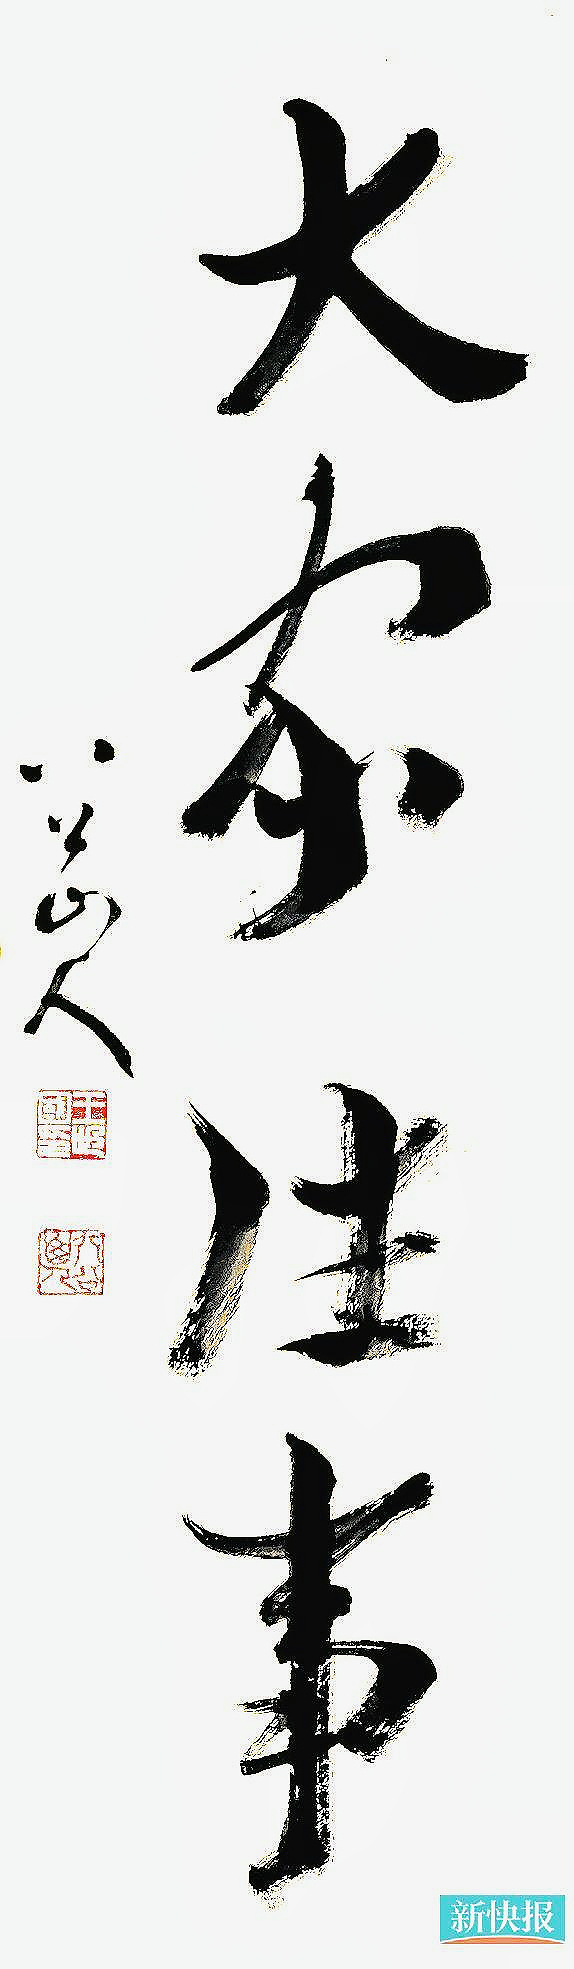 大家往事
八公山人
新快报